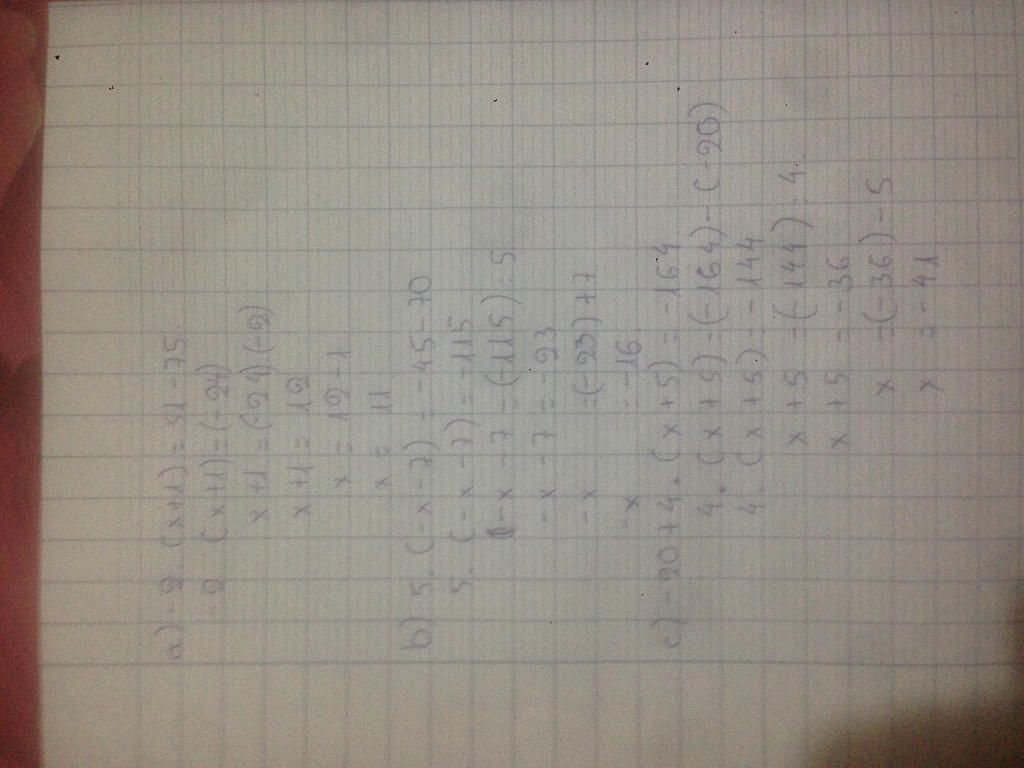 a) -2 (x+1) = 51-75
-2 (x+1) = (-24)
x+1 = (-24):(-2)
x+1 = 12
x = 12-1
x = 11
b) 5. (-x-7) = -45-70
5. (-x-7) = -115
-x-7 = (-115):5
-x-7 = -23
-x = (-23)+7
-x = -16
c) -20+4. (x+5) = -164
4. (x+5) = (-164)-(-20)
4. (x+5) = -144
x+5 = (-144):4
x+5 = -36
x = (-36)-5
x = -41